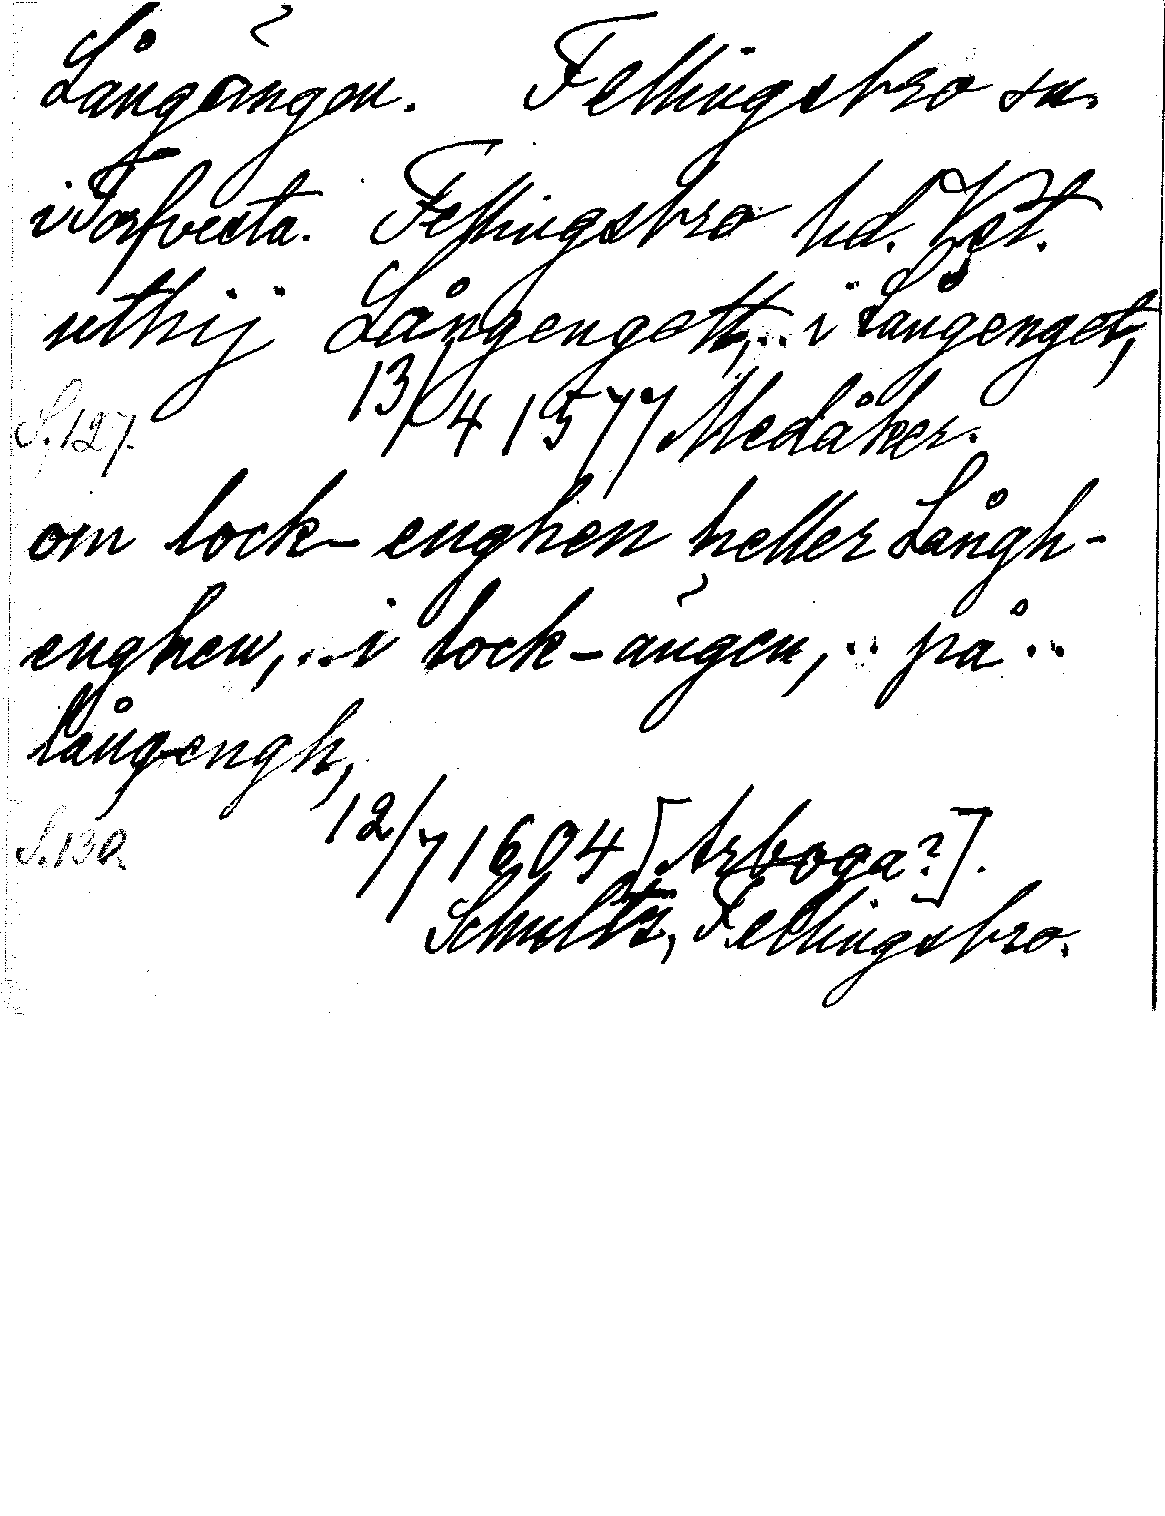 Långängen. Fellingsbro sn.
i Torfvesta. Fellingsbro hd. Vstm.
uthij Långengett, .. i Långenget,
S. 127. 13/4 1577 Medåker.
om lock-enghen heller Långh-
enghen, .. i lock-ängen, .. på ..
långengh,
S. 130. 12/7 1604 [Arboga?].
Schultz, Fellingsbro.